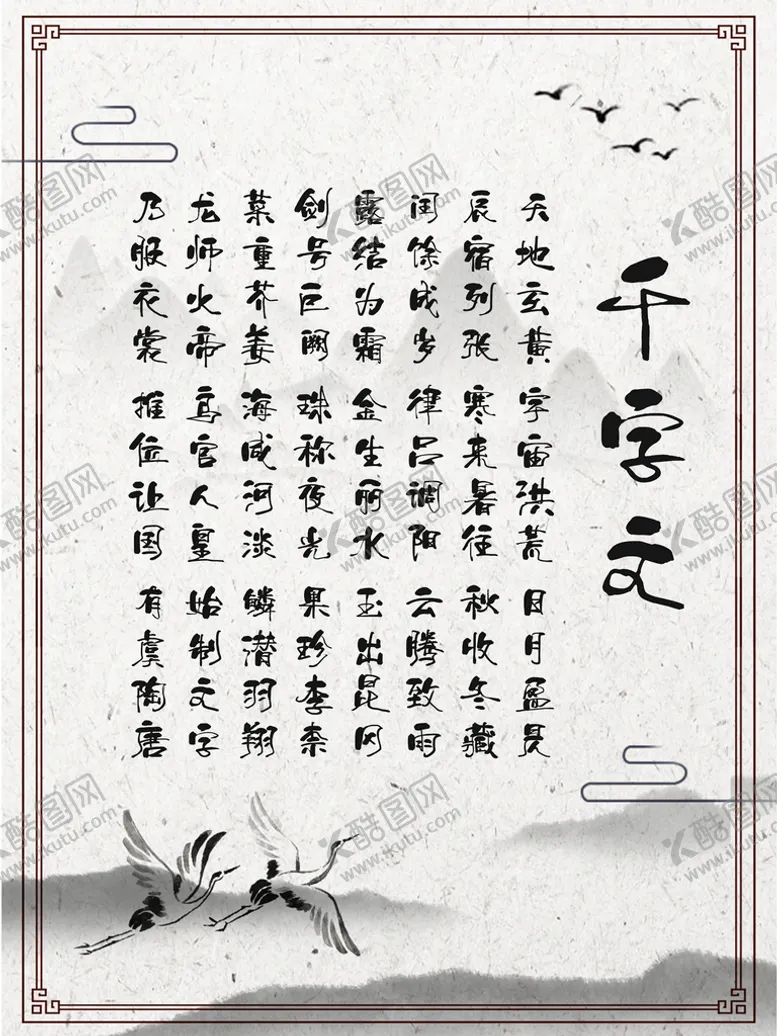 千字文
天地玄黄 宇宙洪荒 日月盈昃
辰宿列张 寒来暑往 秋收冬藏
闰馀成岁 律吕调阳 云腾致雨
露结为霜 金生丽水 玉出昆冈
剑号巨阙 珠称夜光 果珍李柰
菜重芥姜 海咸河淡 鳞潜羽翔
龙师火帝 鸟官人皇 始制文字
乃服衣裳 推位让国 有虞陶唐
酷图网
www.ikutu.com